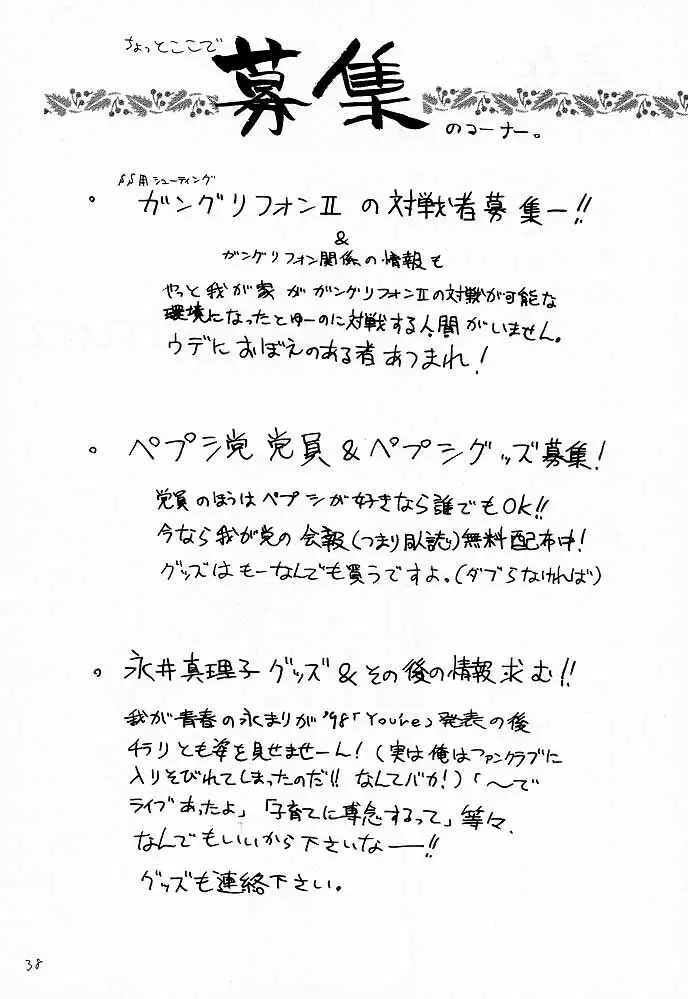 ちょっとここで
募集
のコーナー。
SS用シューティング
。ガングリフォンII の対戦者募集ー!!
&
ガングリフォン関係の情報も
やっと我が家がガングリフォンIIの対戦が可能な
環境になったとゆーのに対戦する人間がいません。
ウデにおぼえのある者あつまれ!
。ペプシ党 党員&ペプシグッズ募集!
党員のほうはペプシが好きなら誰でもOK!!
今なら我が党の会報(つまり同人誌)無料配布中!
グッズはもーなんでも買うですよ。(ダブらなければ)
。永井真理子グッズ&その後の情報求む!!
我が青春の永まりが'98「You're」発表の後
チラリとも姿を見せませーん!(実は俺はファンクラブに
入りそびれてしまったのだ!!なんてバカ!)「〜で
ライブあったよ」「子育てに専念するって」等々、
なんでもいいから下さいなー!!
グッズも連絡下さい。
38